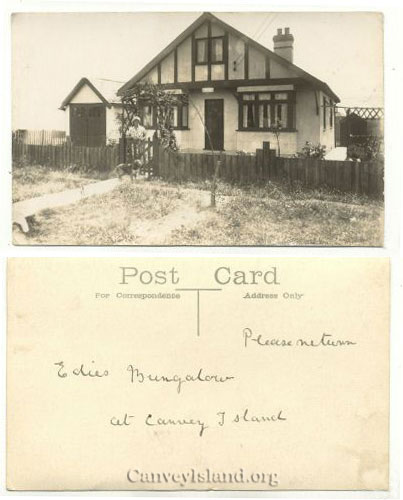 Post Card
For Correspondence
Address Only
Please return
Edies Bungalow
at Canvey Island
CanveyIsland.org